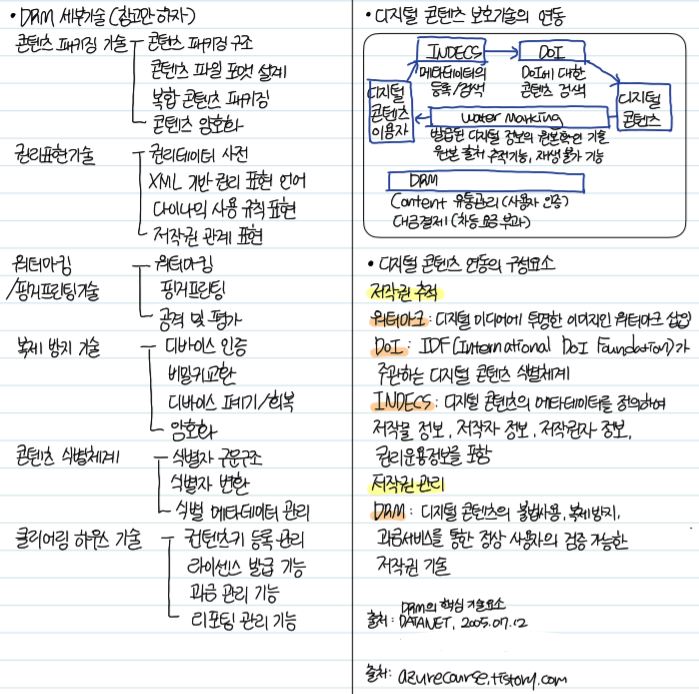 • DRM 세부기술 (참고만 하자)
콘텐츠 패키징 기술 콘텐츠 패키징 구조
콘텐츠 파일 포멧 설계
복합 콘텐츠 패키징
콘텐츠 암호화
권리표현기술 권리데이터 사전
XML 기반 권리 표현 언어
다이나믹 사용 규칙 표현
저작권 관계 표현
워터마킹 워터마킹
/핑거프린팅기술 핑거프린팅
공격 및 평가
복제 방지 기술 디바이스 인증
비밀키교환
디바이스 폐기/회복
암호화
콘텐츠 식별체계 식별자 구문구조
식별자 변환
식별 메타데이터 관리
클리어링 하우스 기술 컨텐츠키 등록 관리
라이센스 발급 기능
과금 관리 기능
리포팅 관리 기능
• 디지털 콘텐츠 보호기술의 연동
INDECS DOI
메타데이터의 DOI에 대한
등록/검색 콘텐츠 검색
디지털
콘텐츠
이용자
디지털
콘텐츠
Water Marking
발급된 디지털 정보의 원본확인 기술
원본 출처 추적기능, 재생불가 기능
DRM
Content 유통관리 (사용자 인증)
대금결제 (차등 요금 부과)
• 디지털 콘텐츠 연동의 구성요소
저작권 추적
워터마크 : 디지털 미디어에 투명한 이미지인 워터마크 삽입
DOI : IDF (International DOI Foundation)가
주관하는 디지털 콘텐츠 식별체계
INDECS : 디지털 콘텐츠의 메타데이터를 정의하여
저작물 정보, 저작자 정보, 저작권자 정보,
권리운용정보를 포함
저작권 관리
DRM : 디지털 콘텐츠의 불법사용, 복제방지,
과금서비스를 통한 정상 사용자의 검증 가능한
저작권 기술
DRM의 핵심 기술요소
출처 : DATANET, 2005.07.12
출처 : azurecourse.tistory.com